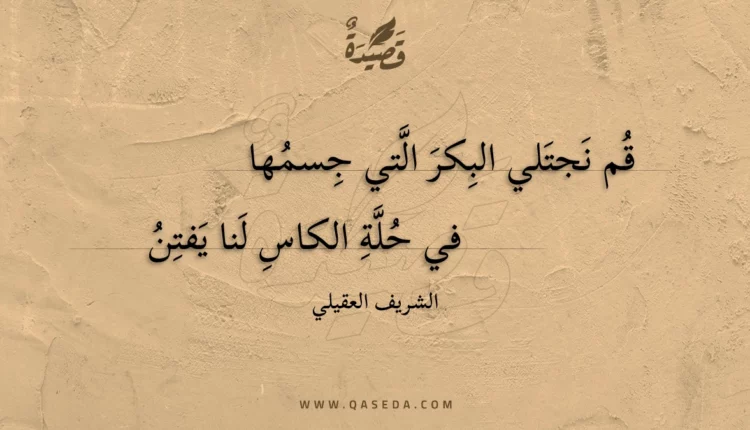 قَصِيدَةٌ
قُم نَجتَلي البِكرَ الَّتي جِسمُها
في حُلَّةِ الكاسِ لَنا يَفتِنُ
الشريف العقيلي
WWW.QASEDA.COM